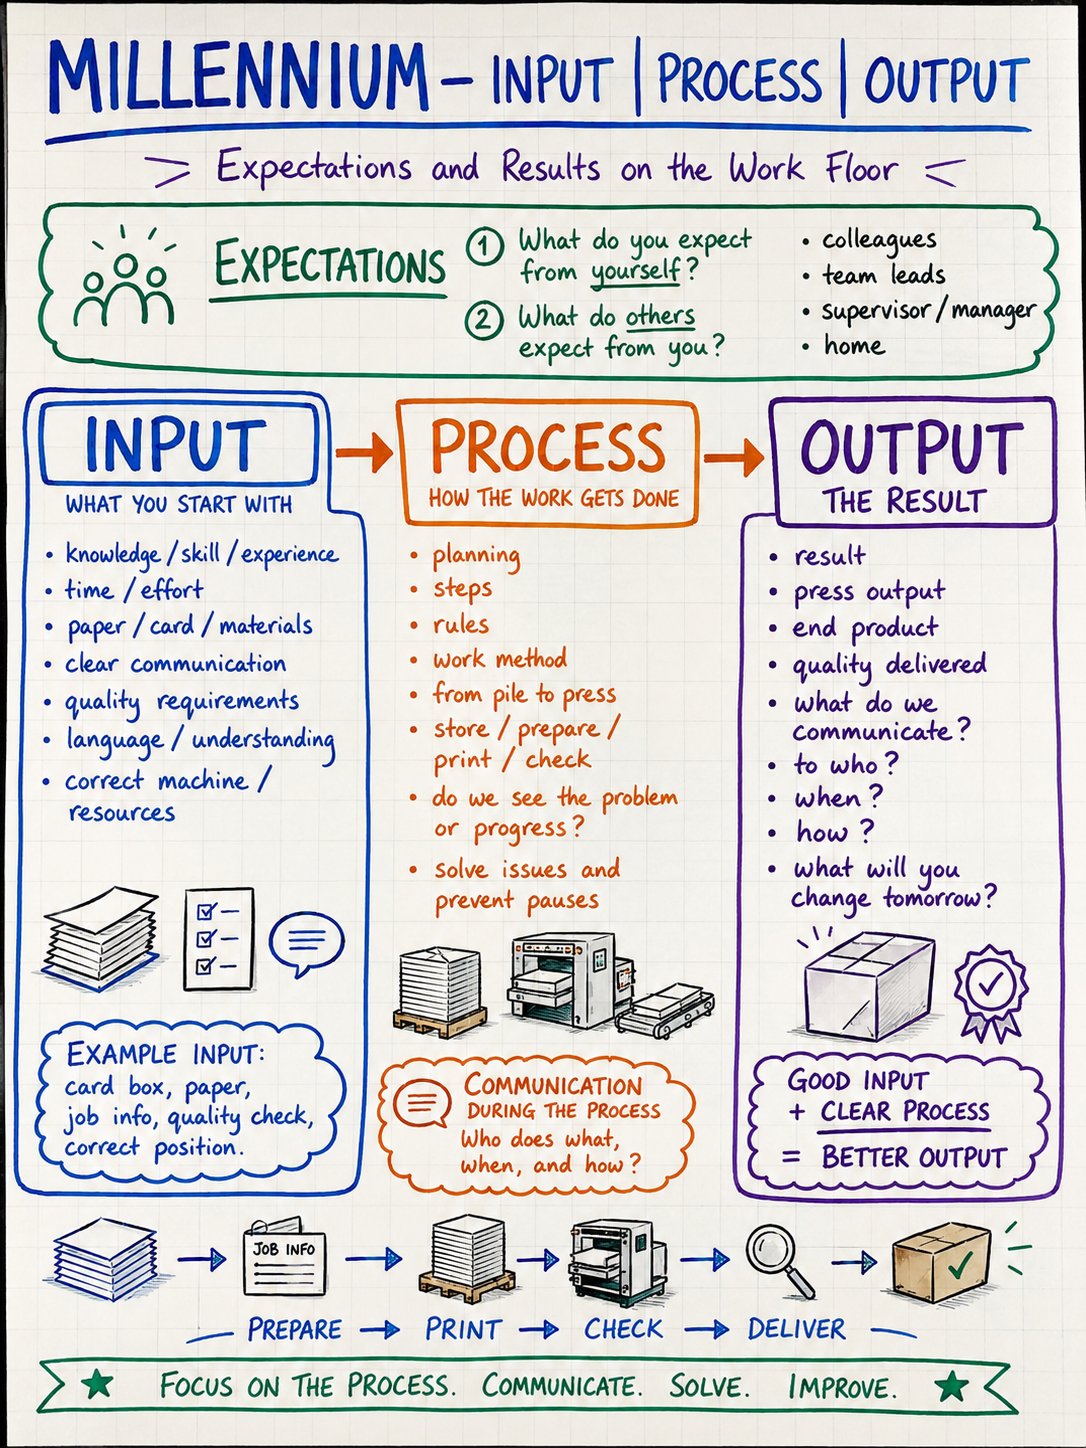 MILLENNIUM – INPUT | PROCESS | OUTPUT
Expectations and Results on the Work Floor
EXPECTATIONS
1 What do you expect
from yourself?
2 What do others
expect from you?
• colleagues
• team leads
• supervisor / manager
• home
INPUT
WHAT YOU START WITH
• knowledge / skill / experience
• time / effort
• paper / card / materials
• clear communication
• quality requirements
• language / understanding
• correct machine /
resources
EXAMPLE INPUT:
card box, paper,
job info, quality check,
correct position.
PROCESS
HOW THE WORK GETS DONE
• planning
• steps
• rules
• work method
• from pile to press
• store / prepare /
print / check
• do we see the problem
or progress?
• solve issues and
prevent pauses
COMMUNICATION
DURING THE PROCESS
Who does what,
when, and how?
OUTPUT
THE RESULT
• result
• press output
• end product
• quality delivered
• what do we
communicate?
• to who?
• when?
• how?
• what will you
change tomorrow?
GOOD INPUT
+ CLEAR PROCESS
= BETTER OUTPUT
JOB INFO
PREPARE → PRINT → CHECK → DELIVER
★ FOCUS ON THE PROCESS. COMMUNICATE. SOLVE. IMPROVE. ★